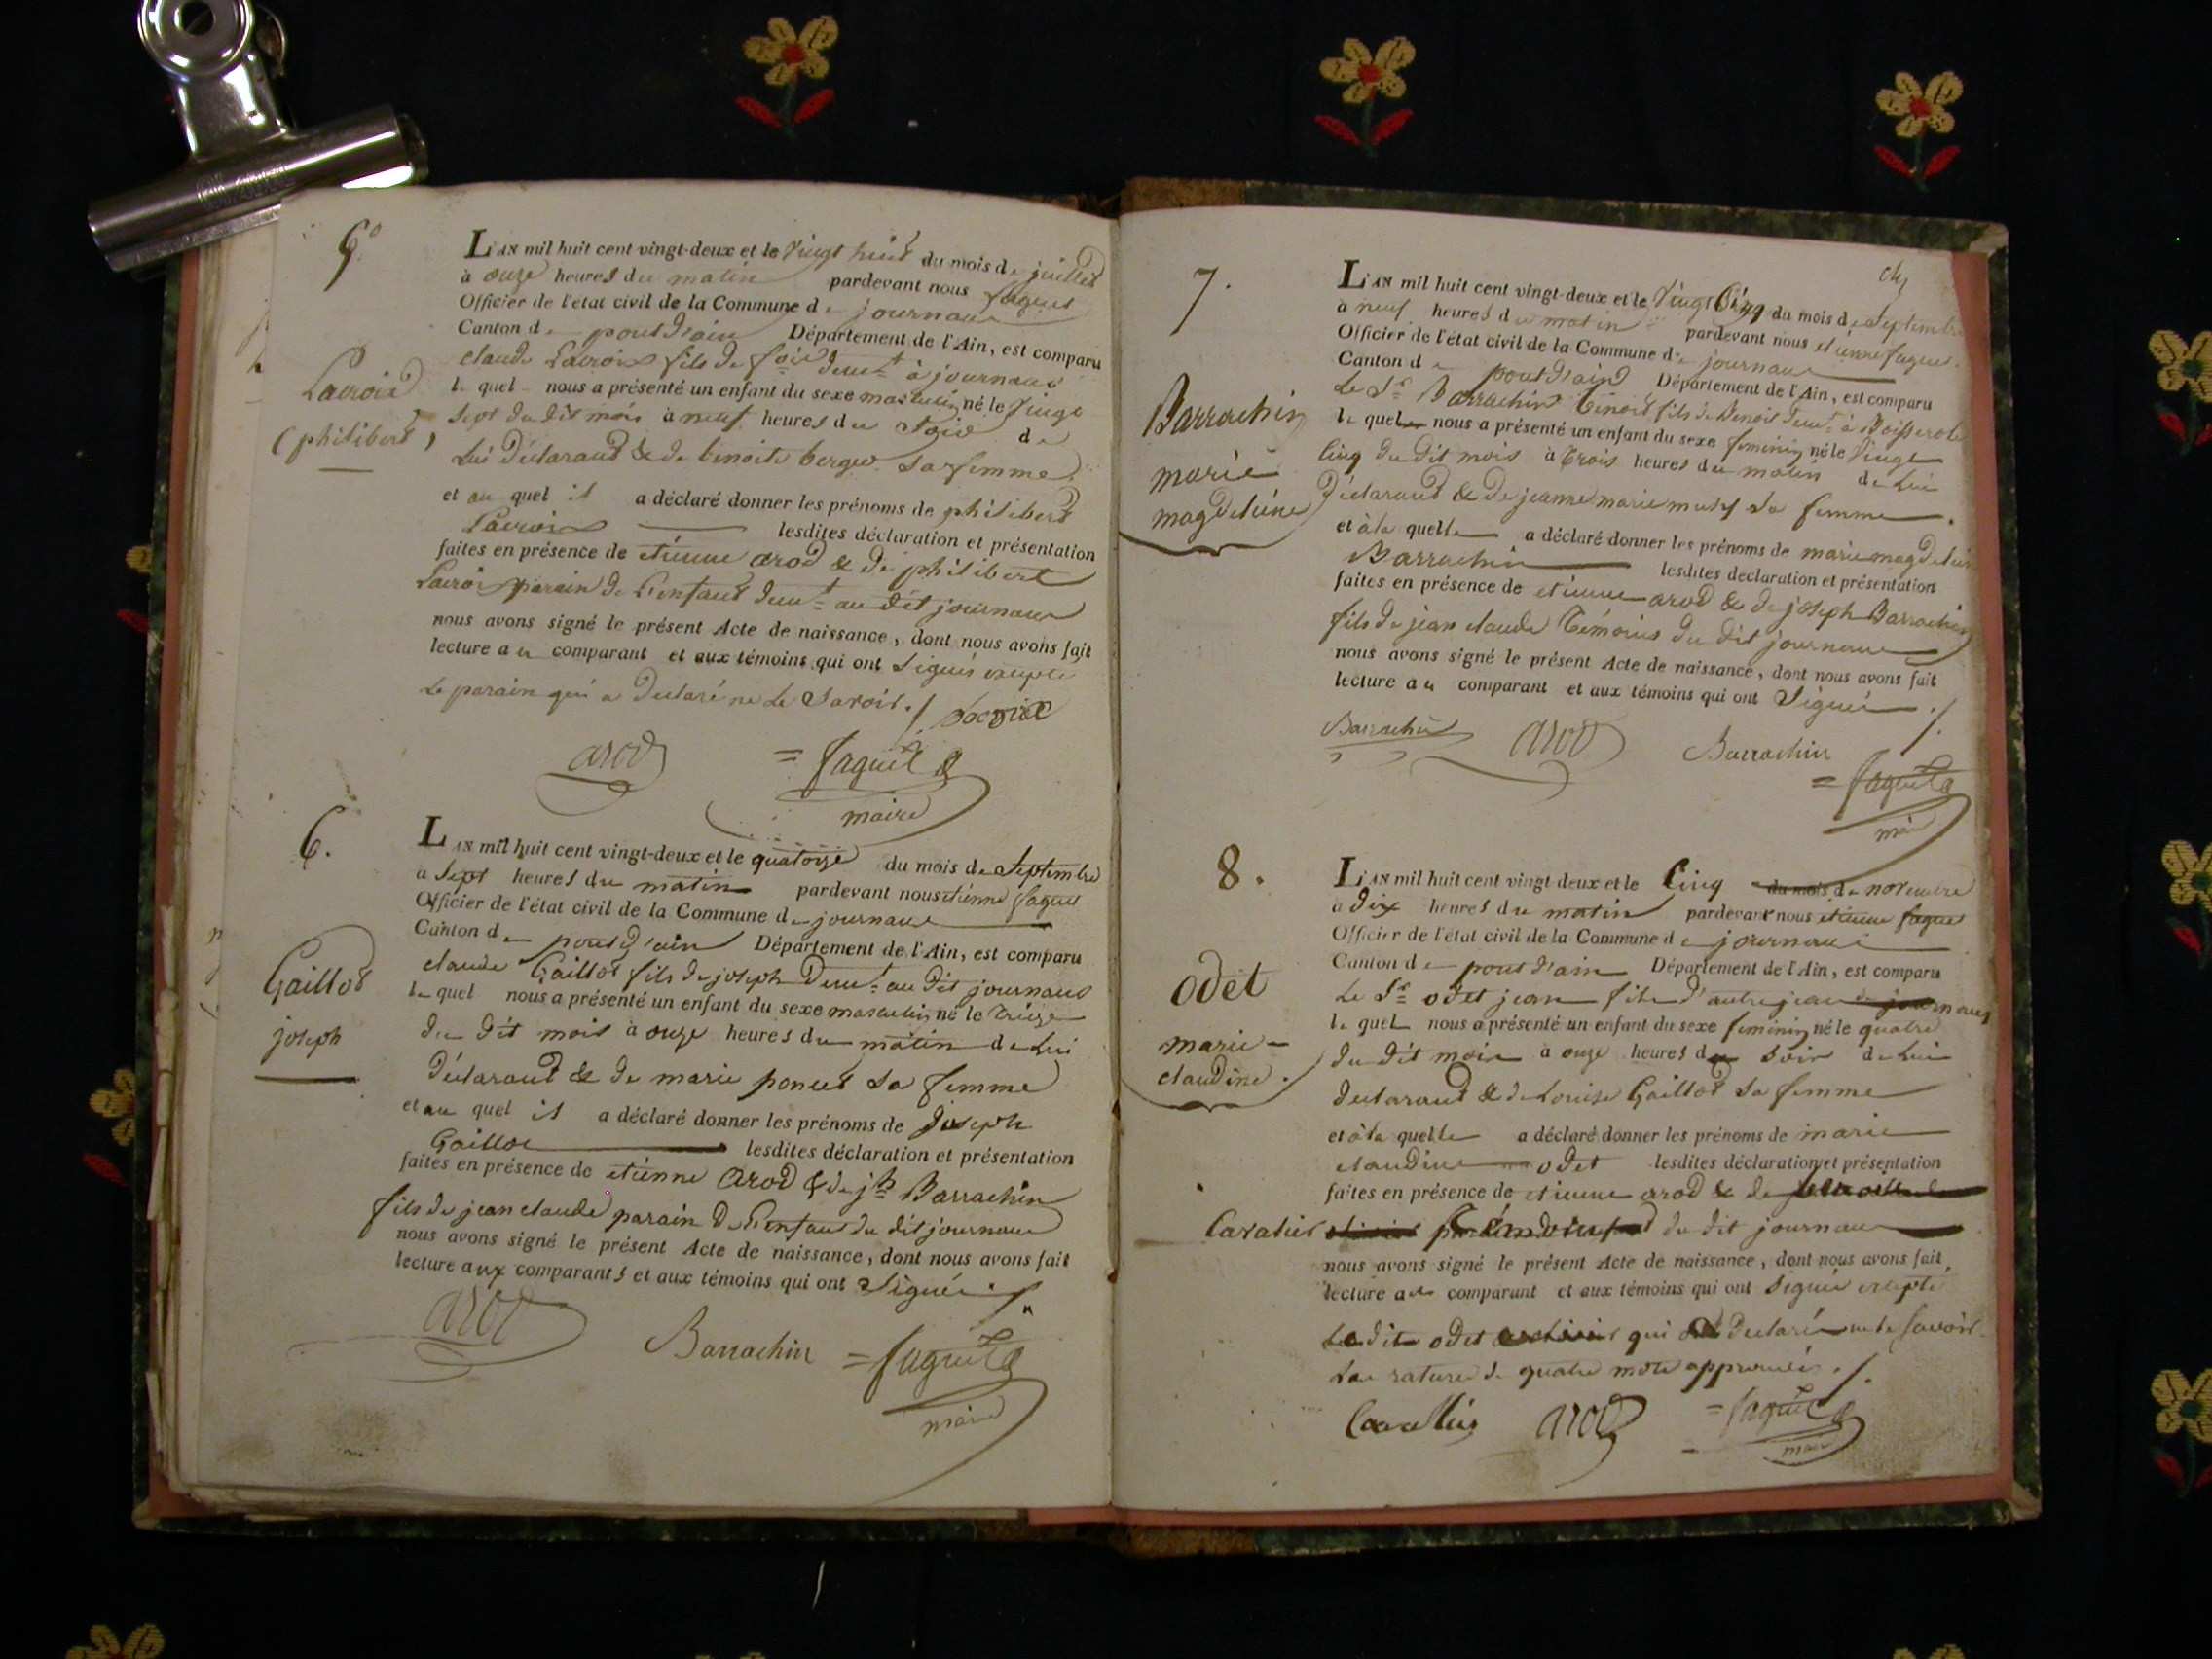 5°
L'AN mil huit cent vingt-deux et le vingt huit du mois de juillet
à onze heures du matin pardevant nous faguet
Officier de l'état civil de la Commune de journans
Canton de pont d'ain Département de l'Ain, est comparu
claude Lacroix fils de demt à journans
Lacroix
le quel nous a présenté un enfant du sexe masculin né le vingt
sept du dit mois à neuf heures du soir de
(philibert)
Lui déclarant & de benoite berger sa femme
et au quel il a déclaré donner les prénoms de philibert
Lacroix lesdites déclaration et présentation
faites en présence de etienne arod & de philibert
Lacroix parain de l'enfant demt au dit journans
nous avons signé le présent Acte de naissance, dont nous avons fait
lecture au comparant et aux témoins qui ont signés excepté
le parain qui a declaré ne le savoir ./. Lacroix
arod = faguet
maire
6.
L'AN mil huit cent vingt-deux et le quatorze du mois de Septembre
à sept heures du matin pardevant nous etienne faguet
Officier de l'état civil de la Commune de journans
Canton de pont d'ain Département de l'Ain, est comparu
claude Gaillot fils de joseph demt au dit journans
Gaillot
le quel nous a présenté un enfant du sexe masculin né le treize
joseph
du dit mois à onze heures du matin de Lui
déclarant & de marie poncet sa femme
et au quel il a déclaré donner les prénoms de joseph
Gaillot lesdites déclaration et présentation
faites en présence de etienne arod & de jh Barrachin
fils de jean claude parain de l'enfant du dit journans
nous avons signé le présent Acte de naissance, dont nous avons fait
lecture aux comparants et aux témoins qui ont signés ./.
arod Barrachin = faguet
maire
7.
L'AN mil huit cent vingt-deux et le vingt cinq du mois de Septembre
à neuf heures du matin pardevant nous etienne faguet
Officier de l'état civil de la Commune de journans
Canton de pont d'ain Département de l'Ain, est comparu
Le Sr Barrachin benoit fils de benoit demt à
Barrachin
le quel nous a présenté un enfant du sexe feminin né le vingt
marie
cinq du dit mois à trois heures du matin de Lui
magdeleine
déclarant & de jeanne marie sa femme
et à la quelle a déclaré donner les prénoms de marie magdeleine
Barrachin lesdites déclaration et présentation
faites en présence de etienne arod & de joseph Barrachin
fils de jean claude témoins du dit journans
nous avons signé le présent Acte de naissance, dont nous avons fait
lecture au comparant et aux témoins qui ont signés ./.
Barrachin arod Barrachin
= faguet
maire
8.
L'AN mil huit cent vingt-deux et le cinq du mois de novembre
à dix heures du matin pardevant nous etienne faguet
Officier de l'état civil de la Commune de journans
Canton de pont d'ain Département de l'Ain, est comparu
Le Sr odet jean fils d'autre jean de journans
odet
le quel nous a présenté un enfant du sexe feminin né le quatre
marie
du dit mois à onze heures du soir de Lui
claudine.
declarant & de Louise Gaillot sa femme
et à la quelle a déclaré donner les prénoms de marie
claudine odet lesdites déclaration et présentation
faites en présence de etienne arod & de
Cavalier témoins du dit journans
nous avons signé le présent Acte de naissance, dont nous avons fait
lecture au comparant et aux témoins qui ont signés excepté
Le dit odet qui a declaré ne le savoir
La rature de quatre mots approuvée ./.
Cavallier arod = faguet
maire